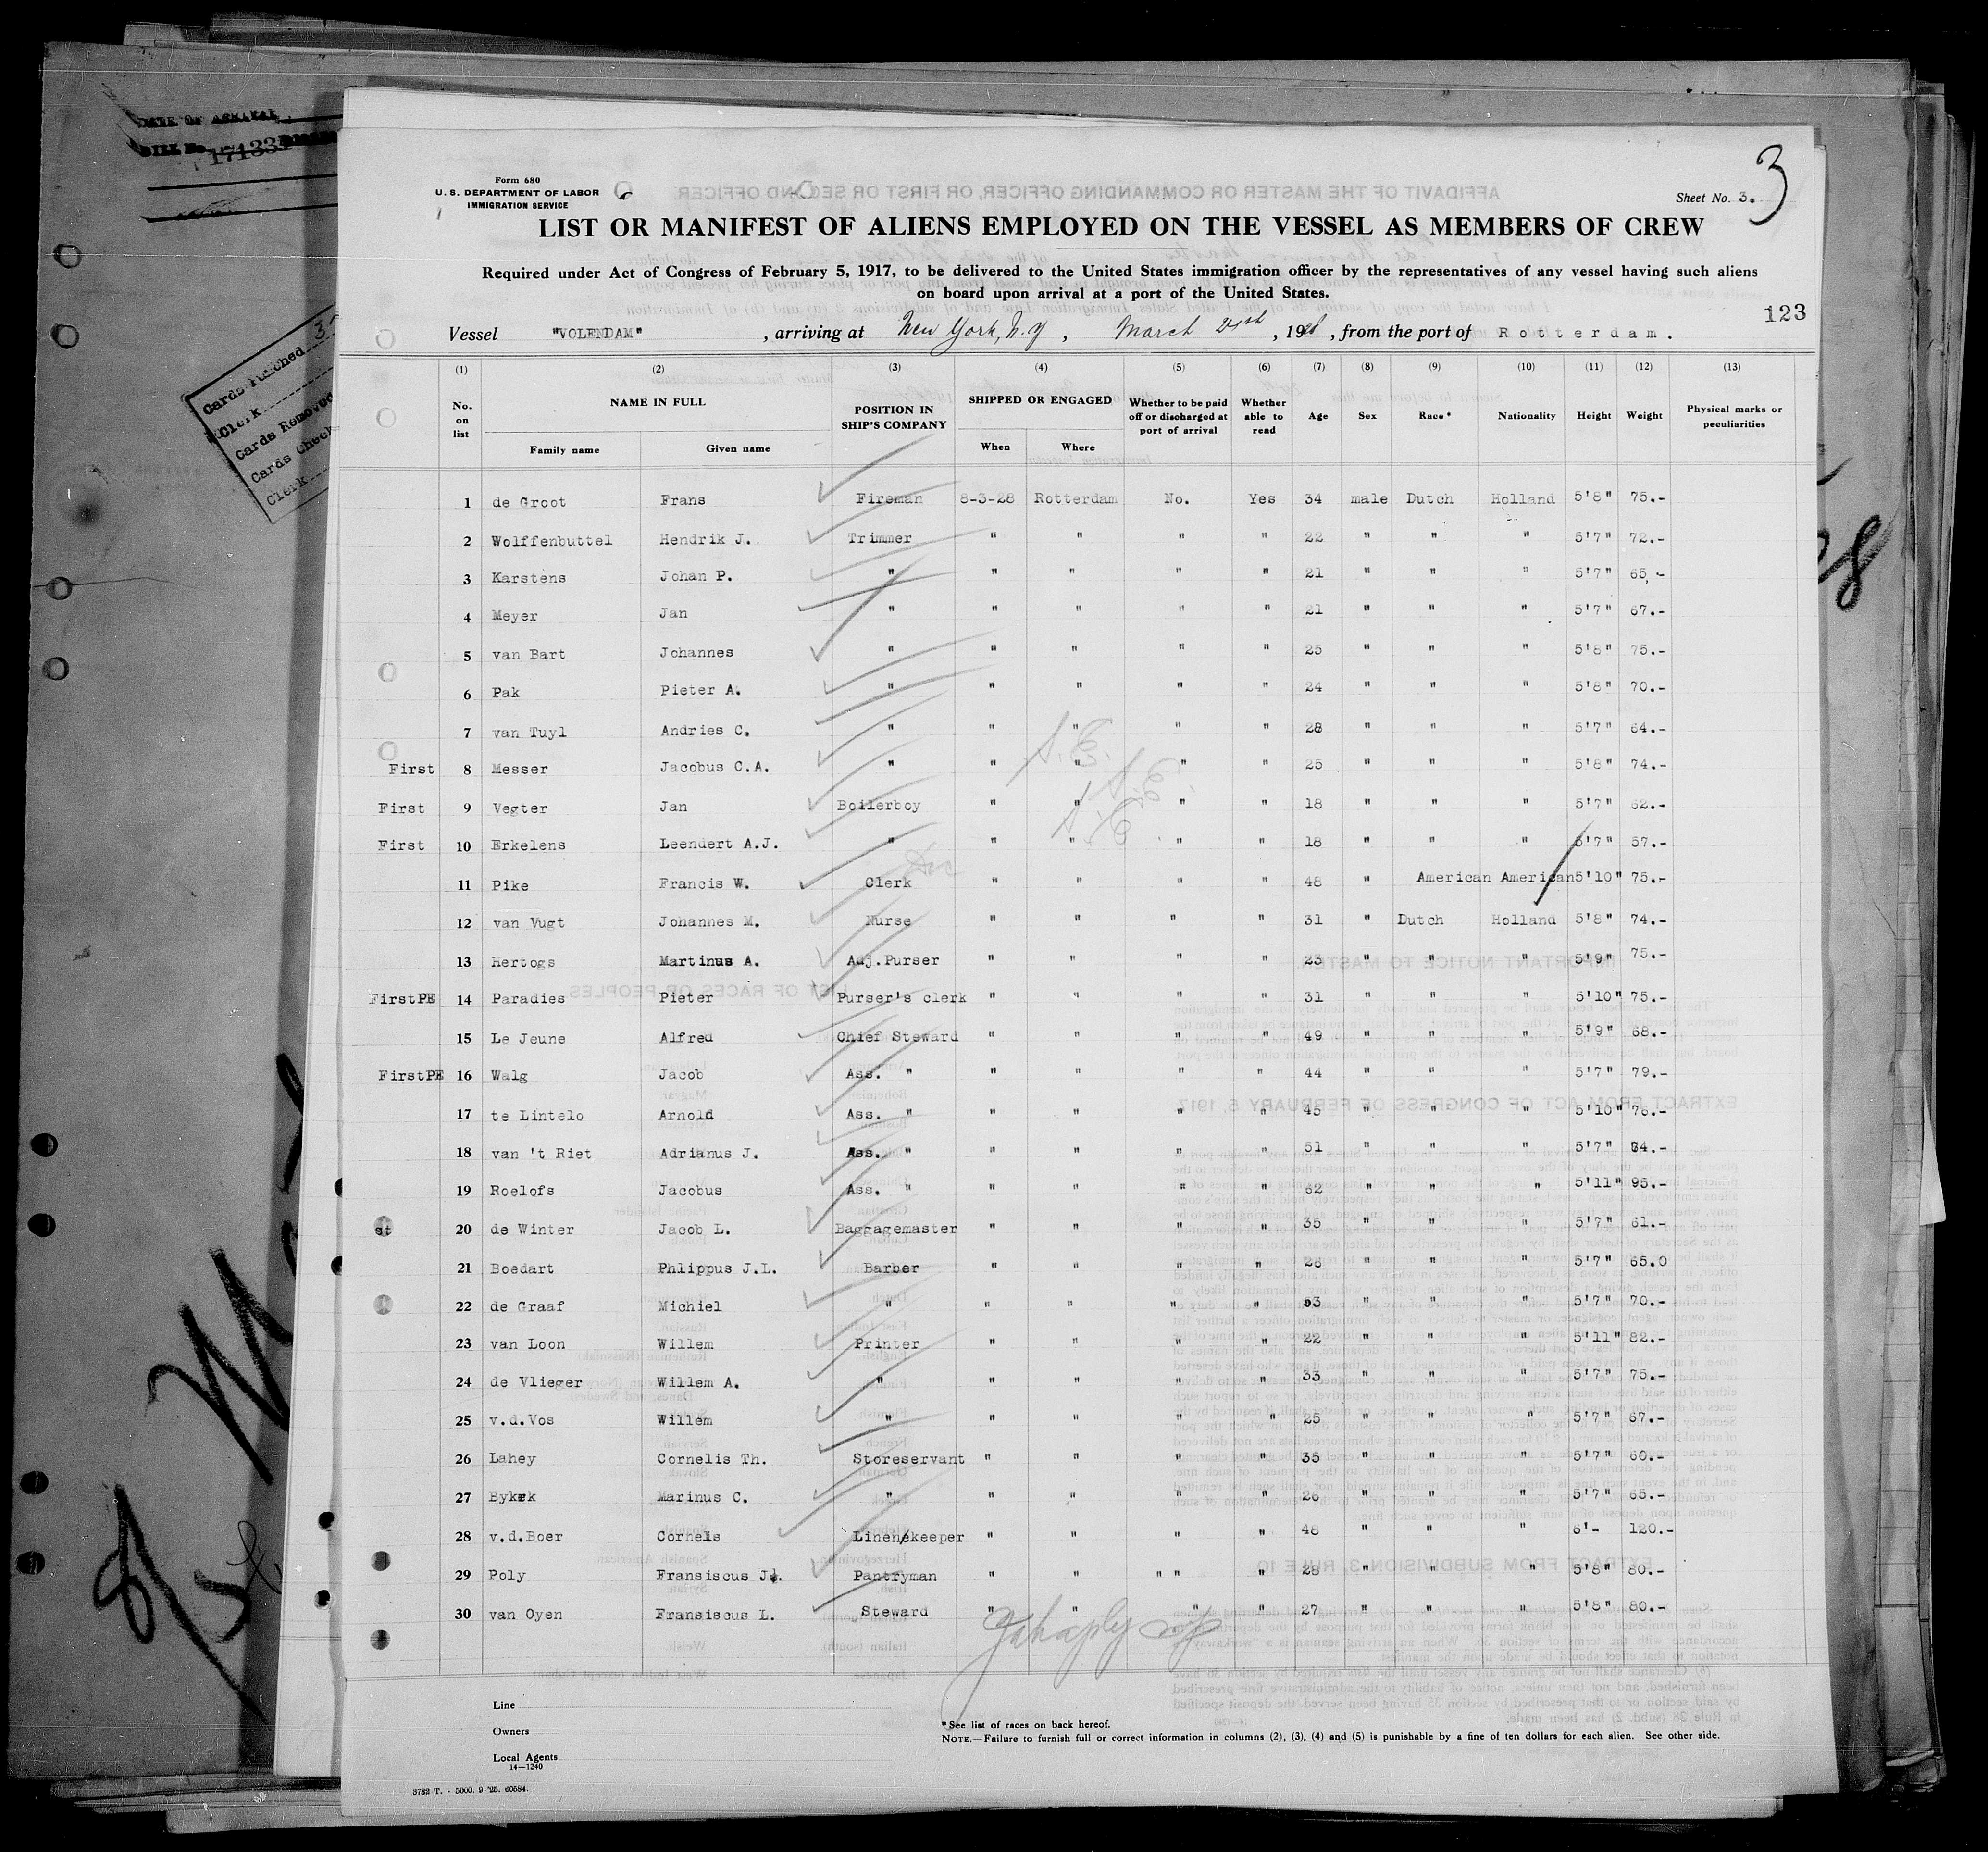 DATE OF ARRIVAL
171331
Cards Punched
Clerk
Cards Removed
Cards Check
Clerk
Form 680
U. S. DEPARTMENT OF LABOR
IMMIGRATION SERVICE
Sheet No. 3.
3
LIST OR MANIFEST OF ALIENS EMPLOYED ON THE VESSEL AS MEMBERS OF CREW
Required under Act of Congress of February 5, 1917, to be delivered to the United States immigration officer by the representatives of any vessel having such aliens
on board upon arrival at a port of the United States.
123
Vessel "VOLENDAM" , arriving at New York, N.Y , March , 1928 , from the port of Rotterdam.
(1) (2) (3) (4) (5) (6) (7) (8) (9) (10) (11) (12) (13)
No. on list NAME IN FULL Family name Given name POSITION IN SHIP'S COMPANY SHIPPED OR ENGAGED When Where Whether to be paid off or discharged at port of arrival Whether able to read Age Sex Race* Nationality Height Weight Physical marks or peculiarities
1 de Groot Frans Fireman 8-3-28 Rotterdam No. Yes 34 male Dutch Holland 5'8" 75.-
2 Wolffenbuttel Hendrik J. Trimmer " " " " 22 " " " 5'7" 72.-
3 Karstens Johan P. " " " " " 21 " " " 5'7" 65,-
4 Meyer Jan " " " " " 21 " " " 5'7" 67.-
5 van Bart Johannes " " " " " 25 " " " 5'8" 75.-
6 Pak Pieter A. " " " " " 24 " " " 5'8" 70.-
7 van Tuyl Andries C. " " " " " 28 " " " 5'7" 64.-
First 8 Messer Jacobus C.A. " " " " " 25 " " " 5'8" 74.-
First 9 Vegter Jan Boilerboy " " " " 18 " " " 5'7" 62.-
First 10 Erkelens Leendert A.J. " " " " " 18 " " " 5'7" 57.-
11 Pike Francis W. Clerk " " " " 48 " American American 5'10" 75.-
12 van Vugt Johannes M. Nurse " " " " 31 " Dutch Holland 5'8" 74.-
13 Hertogs Martinus A. Adj.Purser " " " " 23 " " " 5'9" 75.-
FirstPE 14 Paradies Pieter Purser's clerk " " " " 31 " " " 5'10" 75.-
15 Le Jeune Alfred Chief Steward " " " " 49 " " " 5'9" 68.-
FirstPE 16 Walg Jacob Ass. " " " " " 44 " " " 5'7" 79.-
17 te Lintelo Arnold Ass. " " " " " 45 " " " 5'10" 76.-
18 van 't Riet Adrianus J. Ass. " " " " " 51 " " " 5'7" 84.-
19 Roelofs Jacobus Ass. " " " " " 62 " " " 5'11" 95.-
st 20 de Winter Jacob L. Baggagemaster " " " " 35 " " " 5'7" 61.-
21 Boedart Phlippus J.L. Barber " " " " 28 " " " 5'7" 65.0
22 de Graaf Michiel " " " " " 53 " " " 5'7" 70.-
23 van Loon Willem Printer " " " " 22 " " " 5'11" 82.-
24 de Vlieger Willem A. " " " " " 33 " " " 5'7" 75.-
25 v.d.Vos Willem " " " " " 25 " " " 5'7" 67.-
26 Lahey Cornelis Th. Storeservant " " " " 35 " " " 5'7" 60.-
27 Bykrk Marinus C. " " " " " 26 " " " 5'7" 65.-
28 v.d.Boer Cornels Linenkeeper " " " " 48 " " " 6'- 120.-
29 Poly Fransiscus J. Pantryman " " " " " 28 " " " 5'8" 80.-
30 van Oyen Fransiscus L. Steward " " " " 27 " " " 5'8" 80.-
Line
Owners
Local Agents
14—1240
*See list of races on back hereof.
NOTE.—Failure to furnish full or correct information in columns (2), (3), (4) and (5) is punishable by a fine of ten dollars for each alien. See other side.
3782 T. - 5000. 9-'25. 60584.